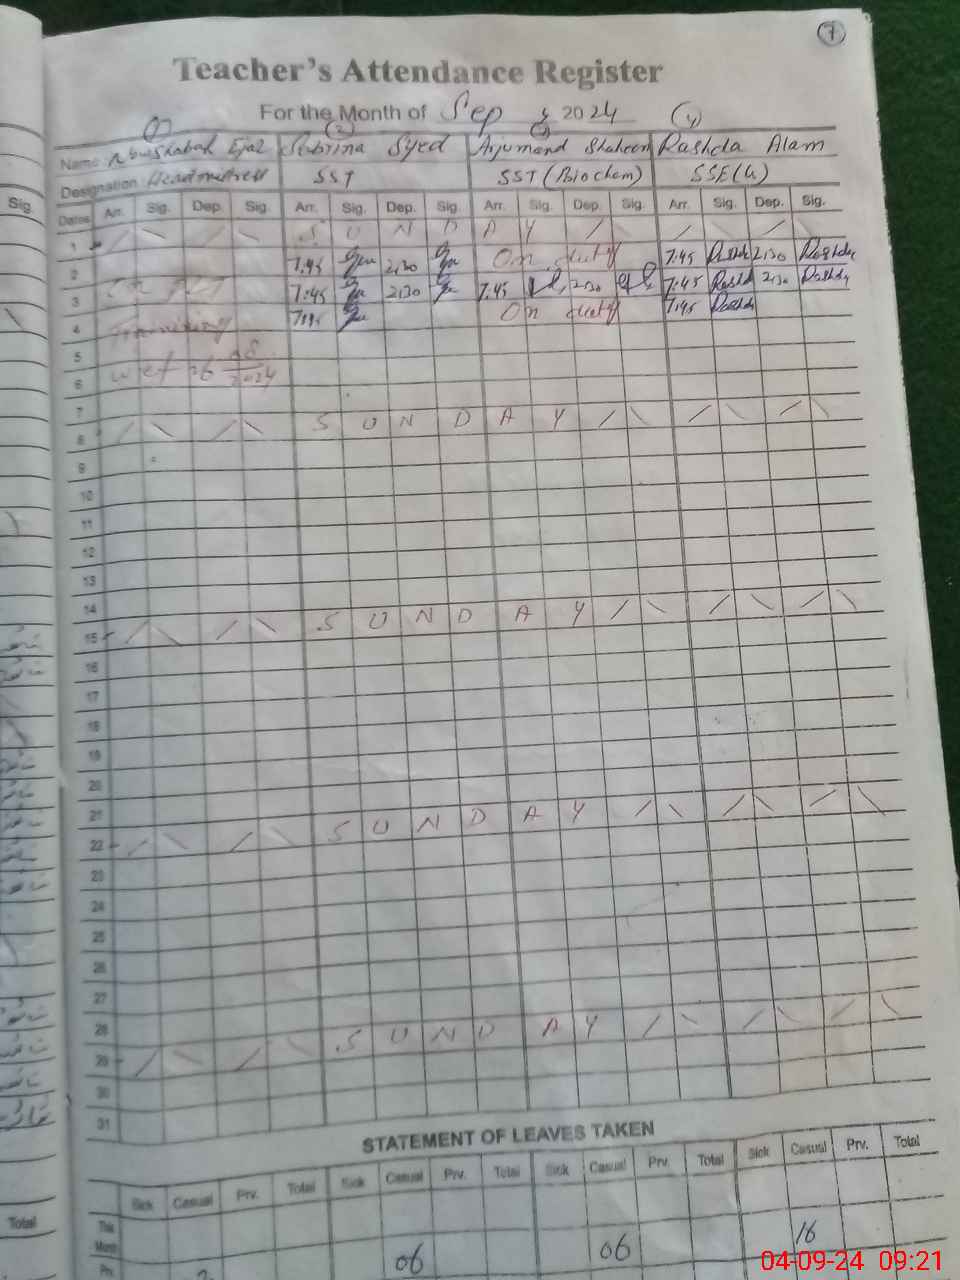 7
Teacher's Attendance Register
For the Month of Sep 2024
(2) (4)
Name Sabrina Syed Arjumand Shaheen Rashda Alam
Designation Headmistress SST SST (Biochem) SSE(G)
Sig. Dates Arr. Sig. Dep. Sig. Arr. Sig. Dep. Sig. Arr. Sig. Dep. Sig. Arr. Sig. Dep. Sig.
1 S U N D A Y
2 7:45 2:30 On duty 7:45 Rashda 2:30 Rashda
3 7:45 2:30 7:45 2:30 7:45 Rashda 2:30 Rashda
4 Training 7:45 On duty 7:45 Rashda
5
6 wef 26 08 2024
7
8 S U N D A Y
9
10
11
12
13
14
15 S U N D A Y
16
17
18
19
20
21
22 S U N D A Y
23
24
25
26
27
28
29 S U N D A Y
30
31
STATEMENT OF LEAVES TAKEN
Sick Casual Prv. Total Sick Casual Prv. Total Sick Casual Prv. Total Sick Casual Prv. Total
Total This Month
Prv. 06 06 16
04-09-24 09:21